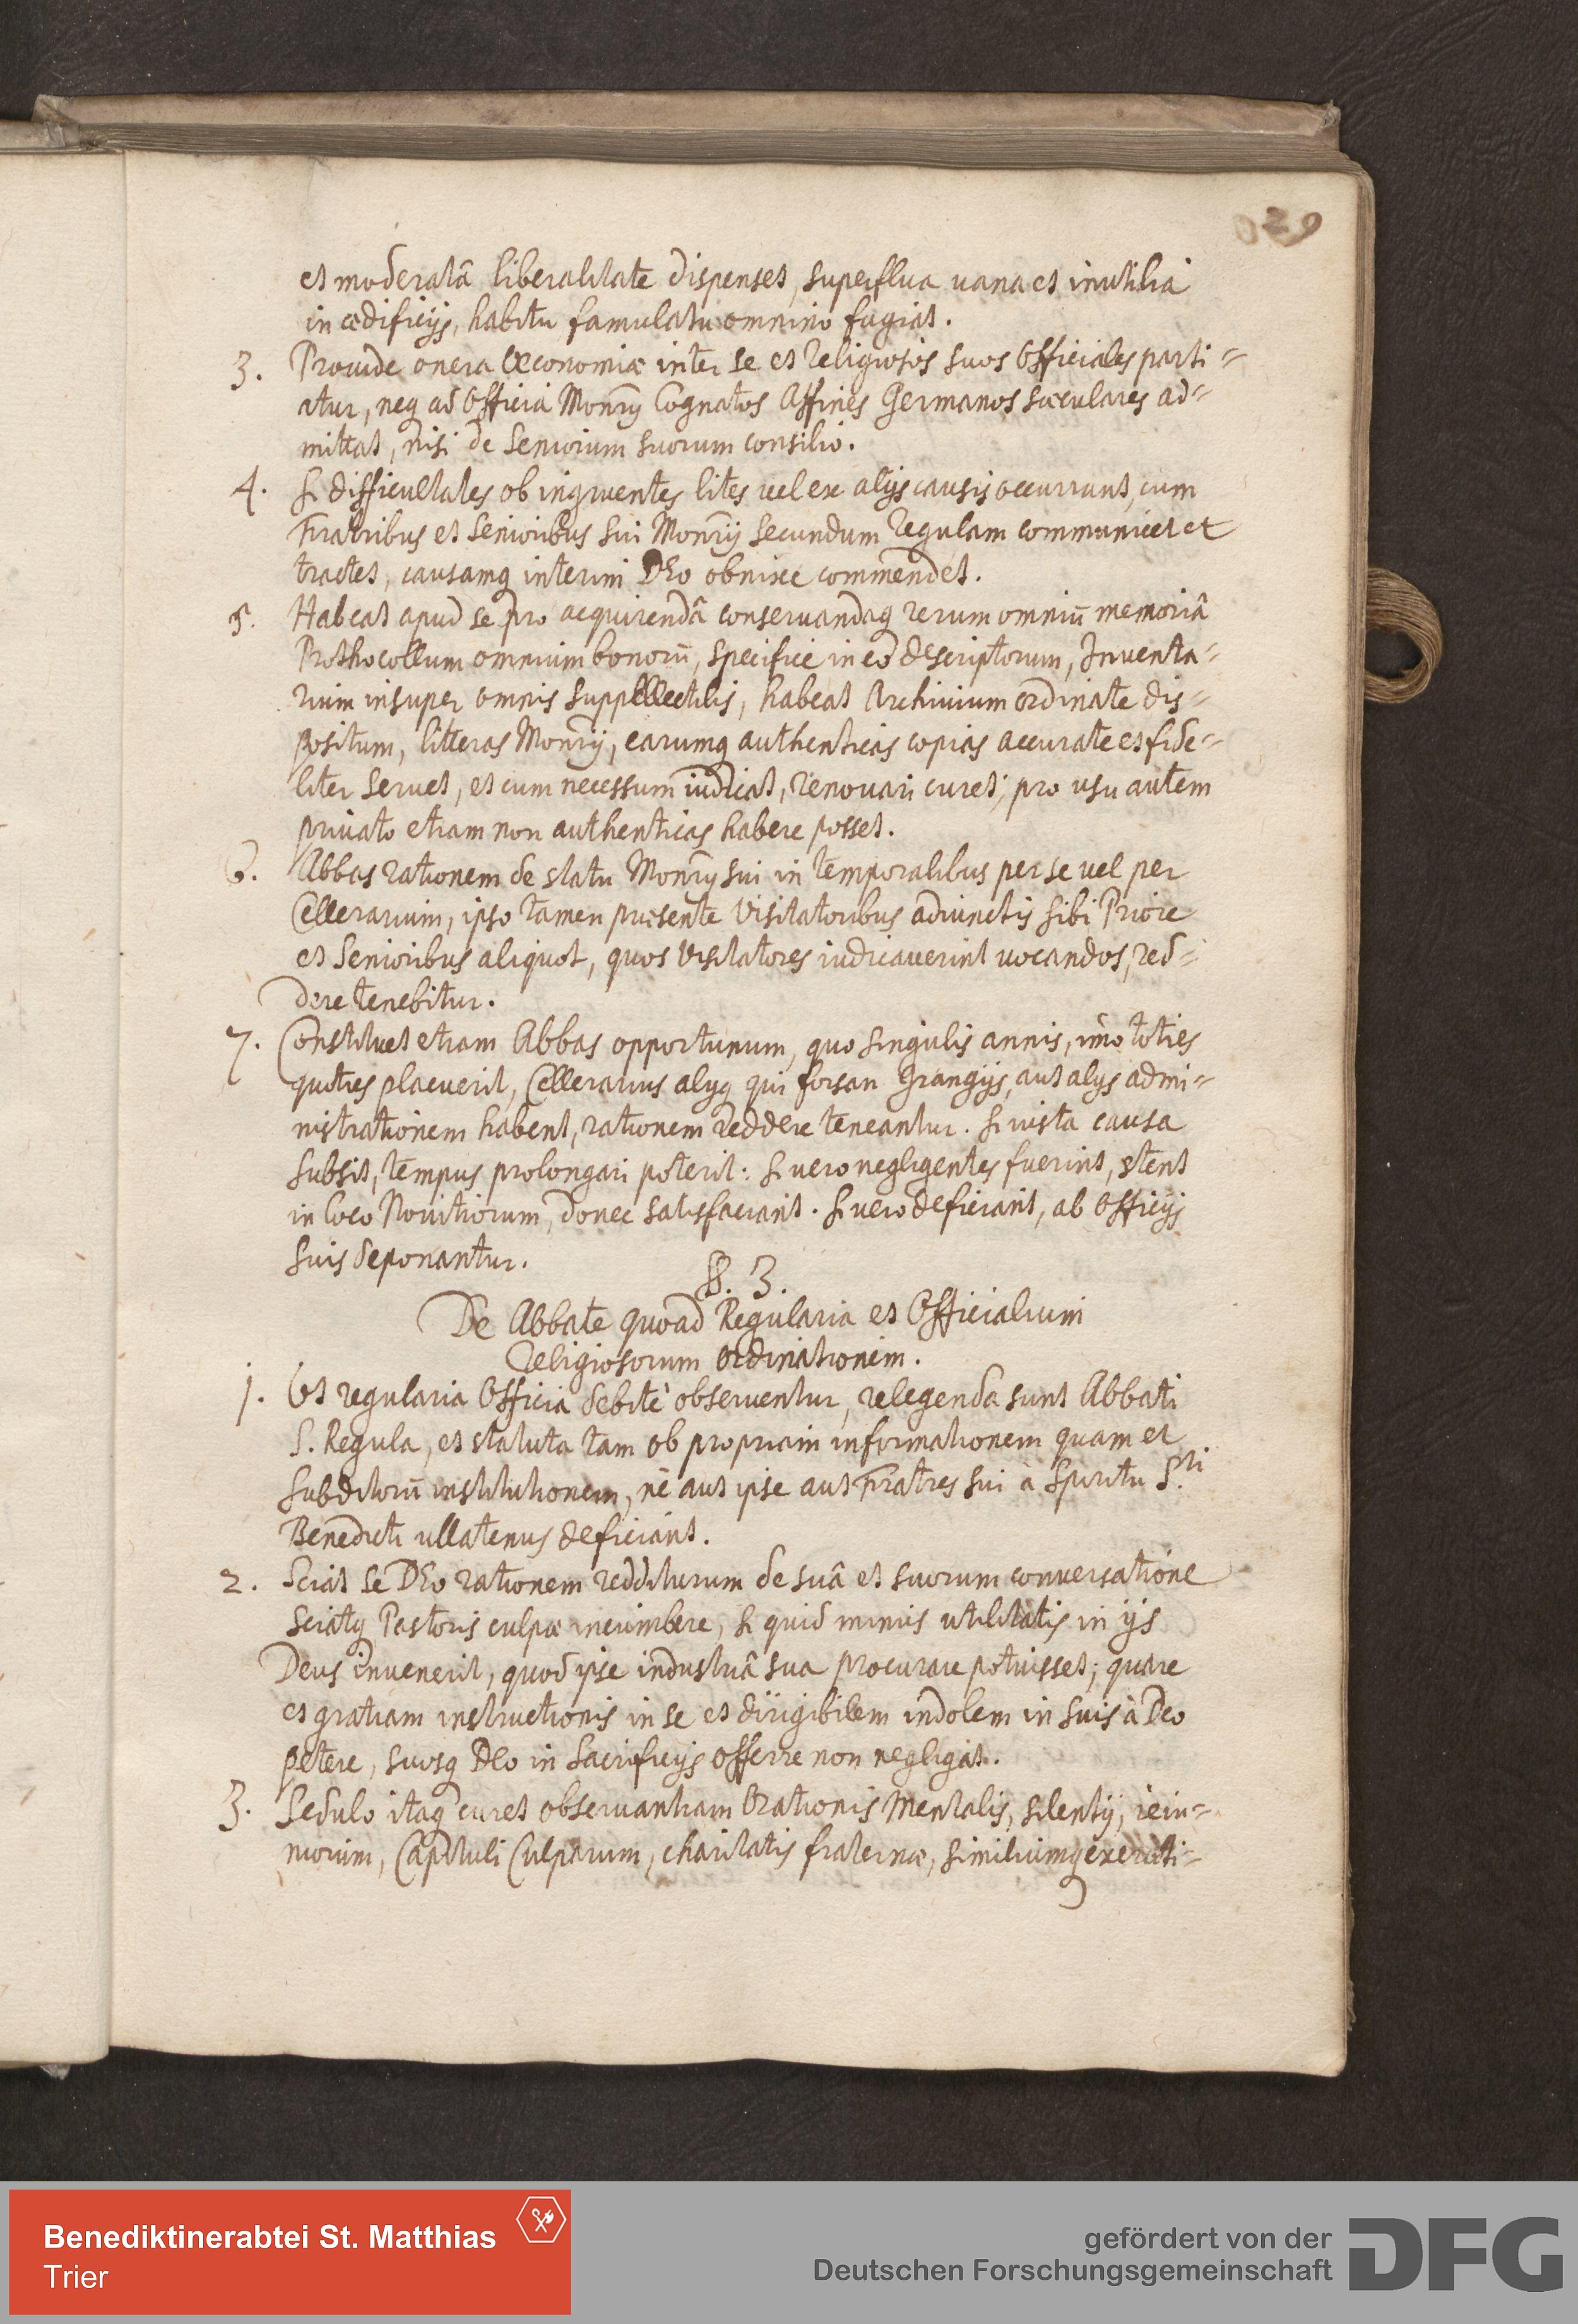 29
et moderatâ liberalitate dispenset, superflua vana et inutilia
in ædificijs, habitu famulatu omnino fugiat.
3. Proinde onera Œconomiæ inter se et religiosos suos Officiales parti=
atur, neq ad Officia Monrij Cognatos Affines Germanos sæculares ad=
mittat, nisi de Seniorum suorum consilio.
4. Si difficultates ob ingruentes lites vel ex alijs causis occurrant, cum
Fratribus et Senioribus sui Monrij secundum regulam communicet et
tractet, causamq interim DEo obnixe commendet.
5. Habeat apud se pro acquirendâ conseruandaq rerum omniū memoriâ
Prothocollum omnium bonorū, specifice in eo descriptorum, Inuenta=
rium insuper omnis suppellectilis, habeat Archiuium ordinate dis=
positum, litteras Monrij, earumq authenticas copias accurate et fide=
liter seruet, et cum necessum iudicat, renouari curet; pro usu autem
priuato etiam non authenticas habere posset.
6. Abbas rationem de statu Monrij sui in temporalibus per se vel per
Cellerarium, ipso tamen præsente Visitatoribus adiunctis sibi Priore
et Senioribus aliquot, quos Visitatores iudicauerint uocandos, red=
dere tenebitur.
7. Constituet etiam Abbas opportunum, quo singulis annis, imo toties
quoties placuerit, Cellerarius alijq qui forsan Grangijs, aut alijs admi=
nistrationem habent, rationem reddere teneantur. Si iusta causa
subsit, tempus prolongari poterit: si uero negligentes fuerint, stent
in loco Nouitiorum, donec satisfaciant. Si uero deficiant, ab Officijs
suis deponantur.
§. 3.
De Abbate quoad Regularia et Officialium
religiosorum ordinationem.
1. Ut regularia Officia debitè obseruentur, relegenda sunt Abbati
S. Regula, et statuta tam ob propriam informationem quam et
subditorū institutionem, nè aut ipse aut Fratres sui à Spiritu S.ti
Benedicti ullatenus deficiant.
2. Sciat se DEo rationem redditurum de suâ et suorum conuersatione
sciatq Pastoris culpæ incumbere, si quid minus utilitatis in ijs
Deus inuenerit, quod ipse industriâ sua procurare potuisset; quare
et gratiam instructionis in se et dirigibilem indolem in suis à Deo
petere, suosq DEo in Sacrificijs offerre non negligat.
3. Sedulo itaq curet obseruantiam Orationis Mentalis, silentij, ieiu=
niorum, Capituli Culparum, charitatis fraternæ, similiumq exerciti=
Benediktinerabtei St. Matthias
Trier
gefördert von der
Deutschen Forschungsgemeinschaft
DFG